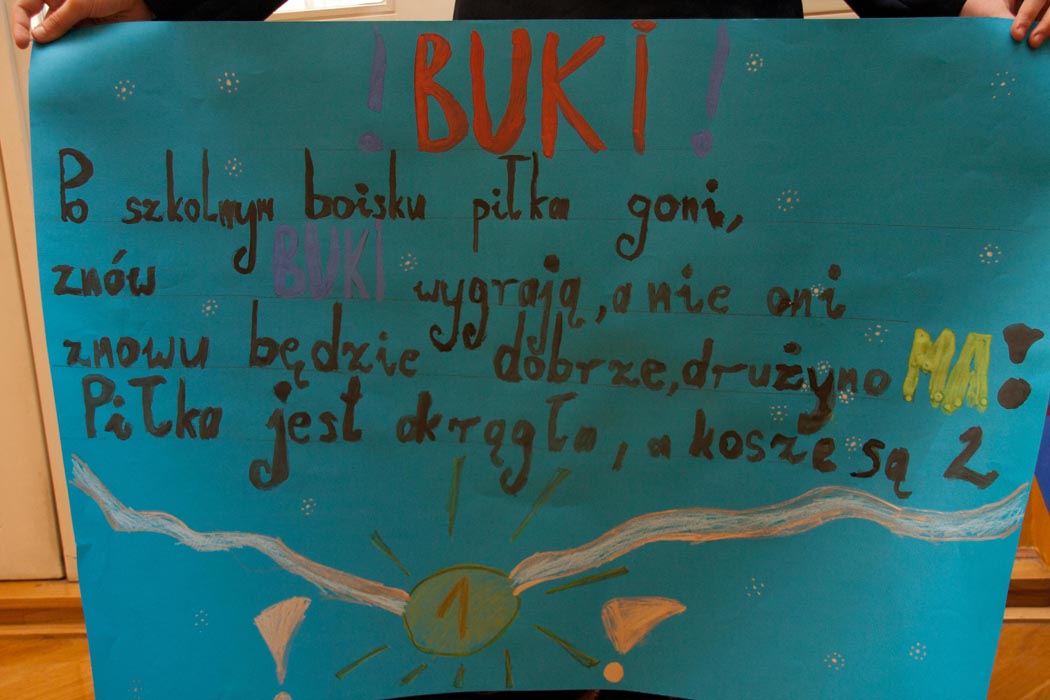 ! BUKI !
Po szkolnym boisku piłka goni,
znów BUKI wygrają, a nie oni
znowu będzie dobrze, drużyno MA!
Piłka jest okrągła, a kosze są 2
1